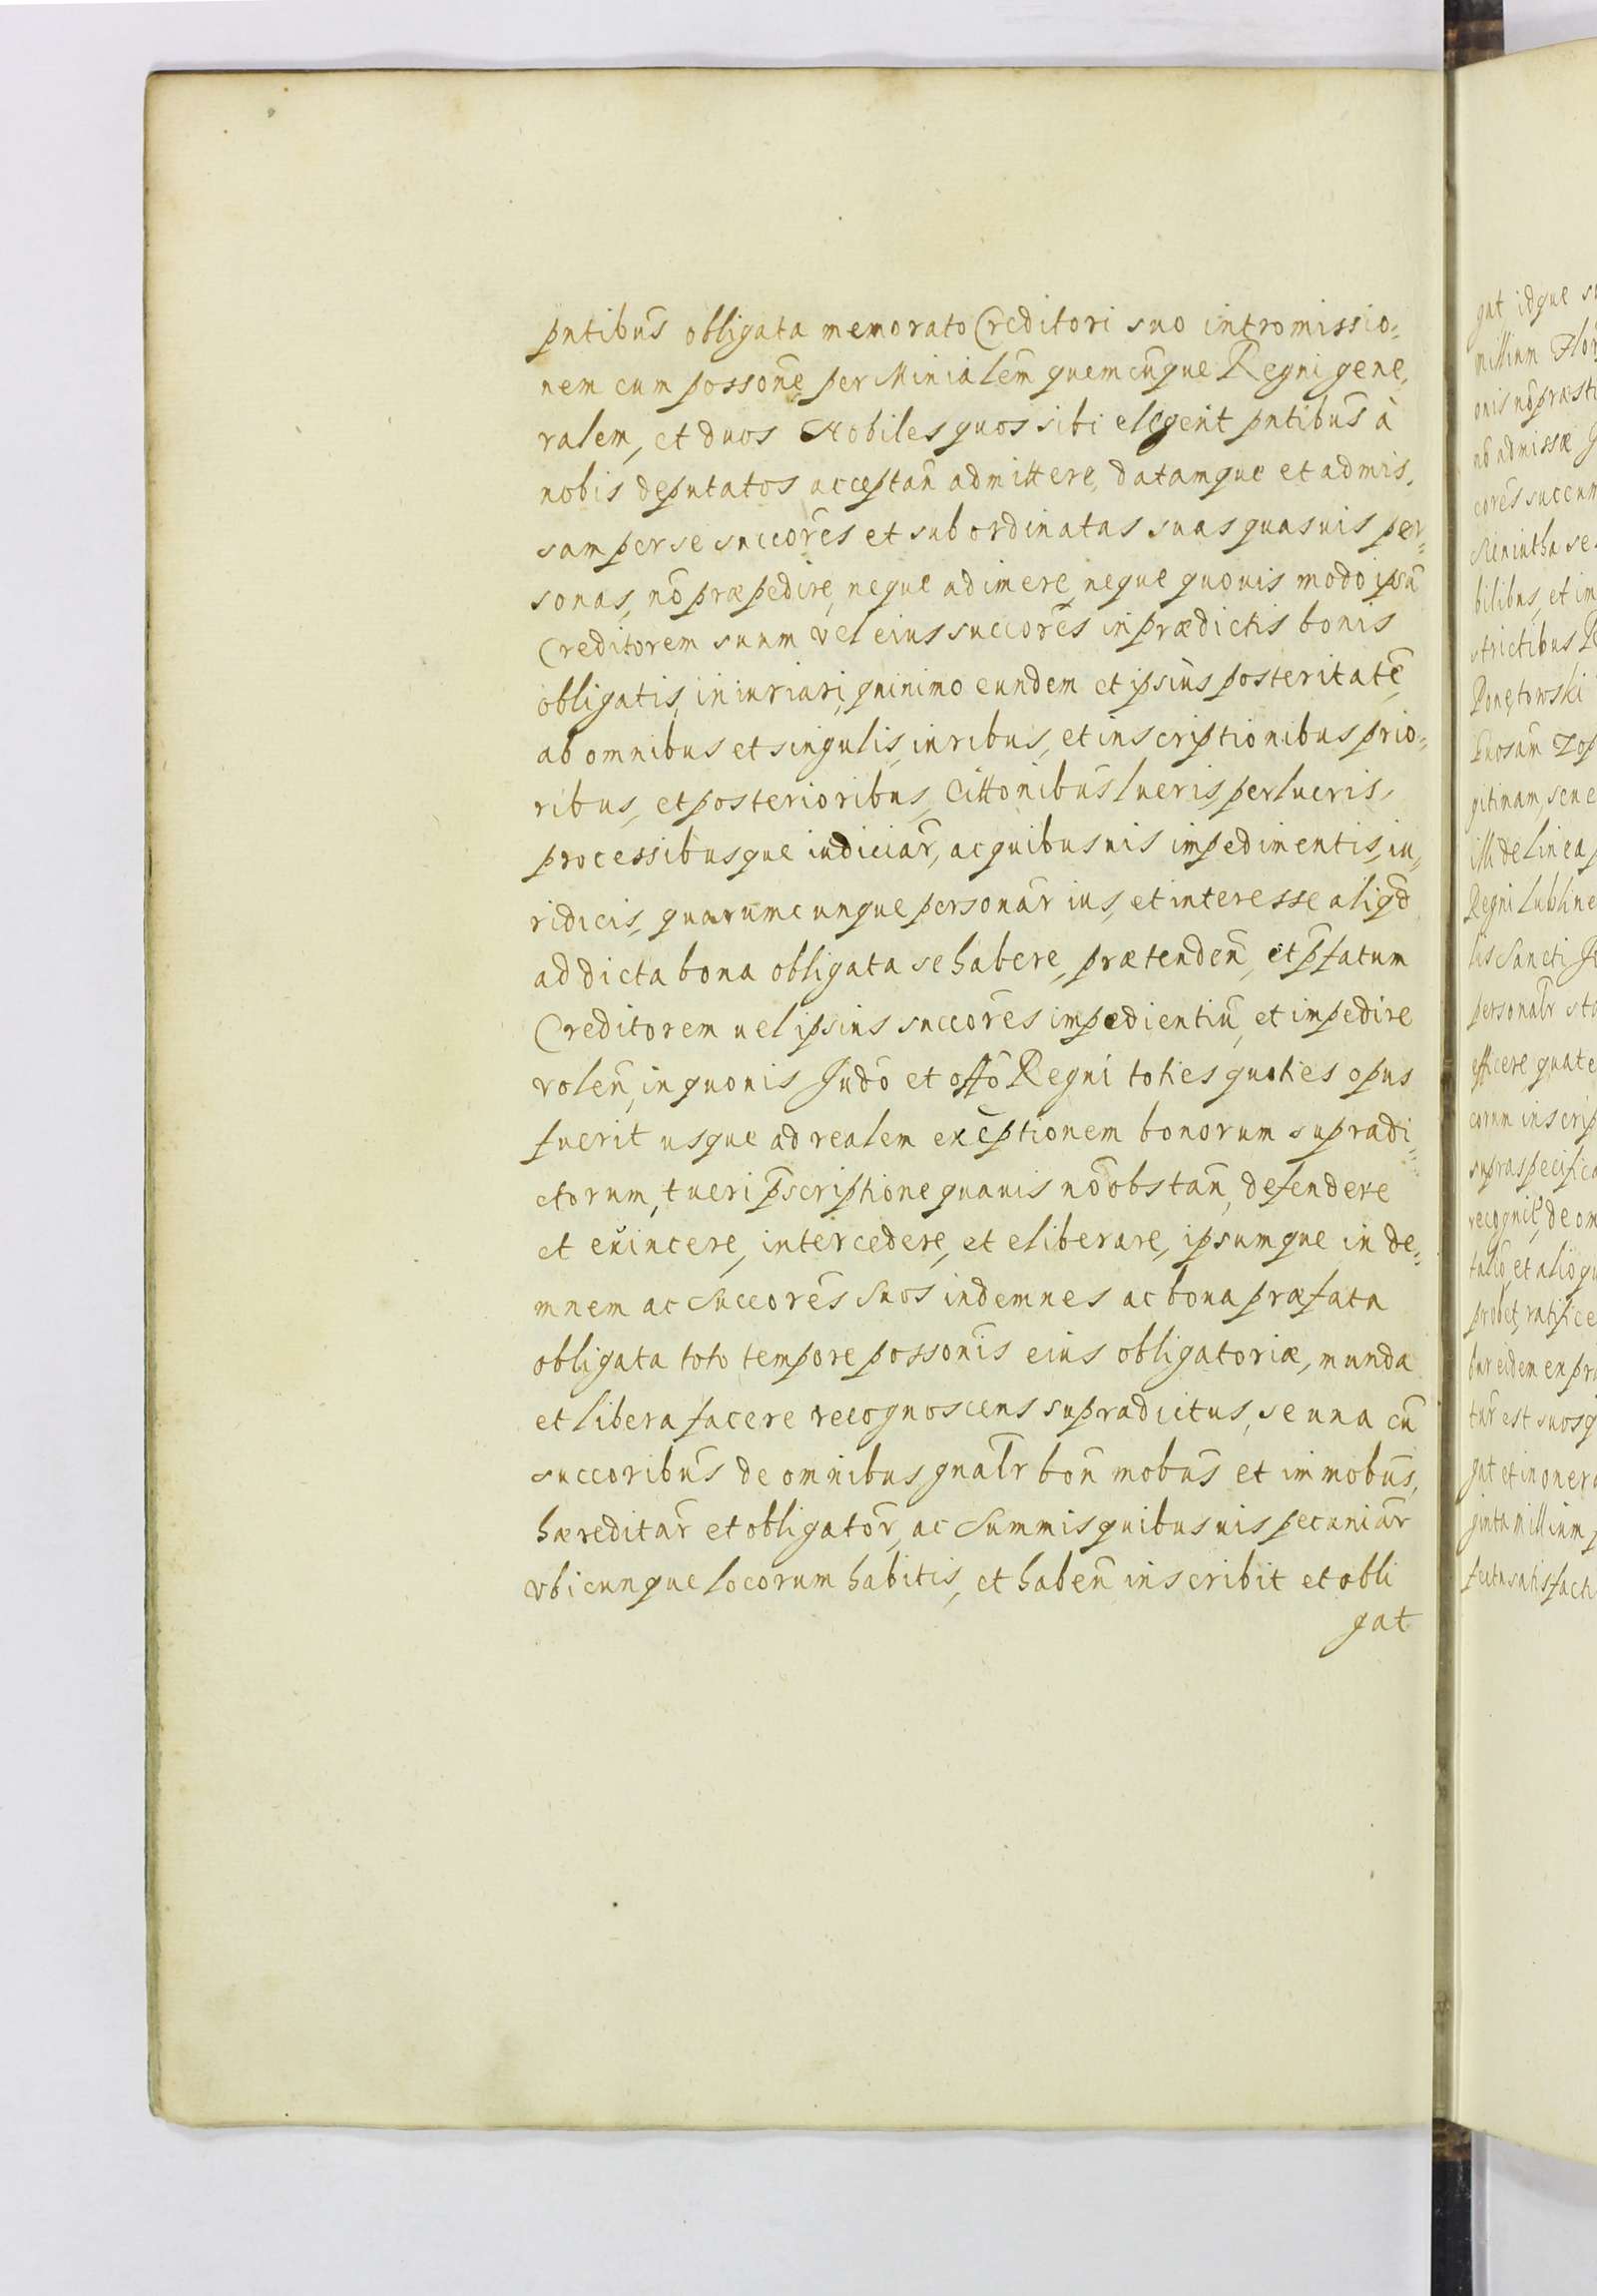 pntibus̃ obligata memorato Creditori suo intromissio=
nem cum possonẽ per Minialem̃ quemcũque Regni gene,
ralem, et duos Nobiles quos sibi elegerit pntibus̃ à
nobis deputatos acceptañ admittere, datamque et admis,
sam per se succorẽs et subordinatas suas quasuis per=
sonas, nõ præpedire, neque adimere, neque quouis modo ipsũ
Creditorem suum vel eius succorẽs in prædictis bonis
obligatis, iniuriari, quinimo eundem et ipsius posteritatẽ,
ab omnibus et singulis, iuribus, et inscriptionibus prio=
ribus, et posterioribus, Cittonibus̃ lucris, perlucris,
processibusque iudiciar̃, ac quibusuis impedimentis, iu,
ridicis, quarumcunque personar̃ ius, et interesse aliqd̃
ad dicta bona obligata se habere, prætendeñ, et p̃fatum
Creditorem uel ipsius succorẽs impedientiũ, et impedire
voleñ, in quouis Judõ et offõ Regni toties quoties opus
fuerit usque ad realem exẽptionem bonorum supradi=
ctorum, tueri p̃scriptione quauis nõ obstañ, defendere
et euincere, intercedere, et eliberare, ipsumque inde=
mnem ac Succorẽs Suos indemnes ac bona præfata
obligata toto tempore possonis̃ eius obligatoriæ, munda
et libera facere recognoscens supradictus, se una cũ
succoribus̃ de omnibus gnalr̃ boñ mobus̃ et immobus̃,
hæreditar̃ et obligator̃, ac Summis quibusuis pecuniar̃
vbicunque locorum habitis, et habeñ inscribit et obli
gat